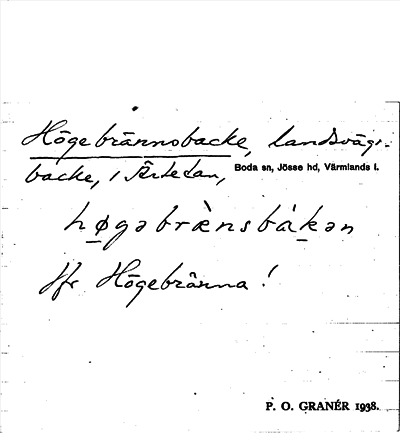 Högebrännsbacke, landsvägs-
backe, i Ärtetan, Boda sn, Jösse hd, Värmlands l.
høgəbrænsbàkən
Jfr Högebränna!
P. O. GRANÉR 1938.